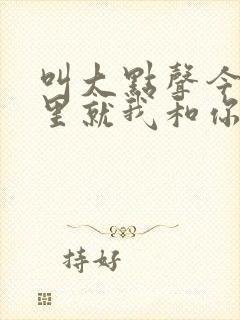 叫大點聲今
里就我和你
持好